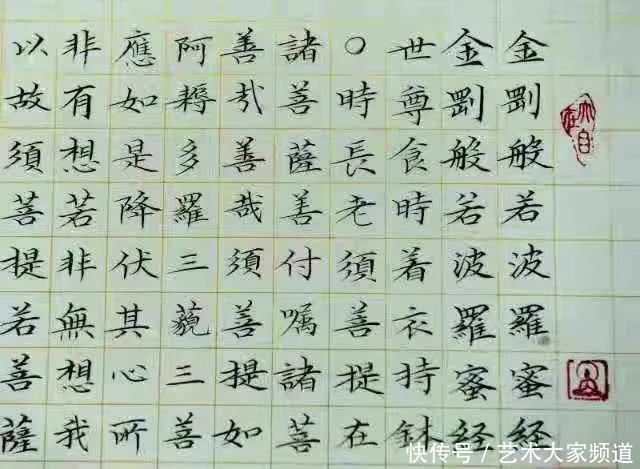 金剛般若波羅蜜経
金剛般若波羅蜜経
世尊食時着衣持鉢
〇時長老須菩提在
諸菩薩善付嘱諸菩
善哉善哉須菩提如
阿耨多羅三藐三菩
應如是降伏其心所
非有想若非無想我
以故須菩提若菩薩
快传号/艺术大家频道